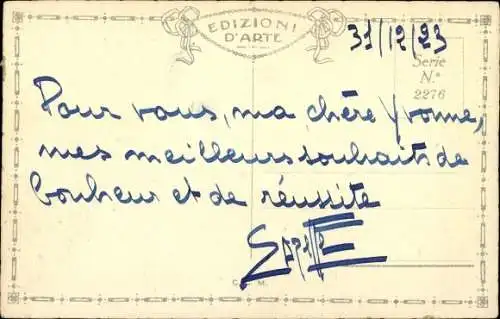 EDIZIONI
D'ARTE
31/12/23
Serie
N.°
2276
Pour vous, ma chère Yvonne,
mes meilleurs souhaits de
bonheur et de réussite